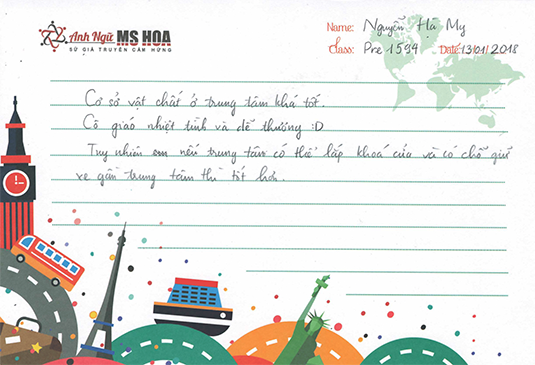 Anh Ngữ MS HOA
SỨ GIẢ TRUYỀN CẢM HỨNG
Name: Nguyễn Hà My
Class: Pre 1594 Date: 13/01/2018
Cơ sở vật chất ở trung tâm khá tốt.
Cô giáo nhiệt tình và dễ thương :D
Tuy nhiên em nếu trung tâm có thể lắp khoá cửa và có chỗ giữ
xe gần trung tâm thì tốt hơn.